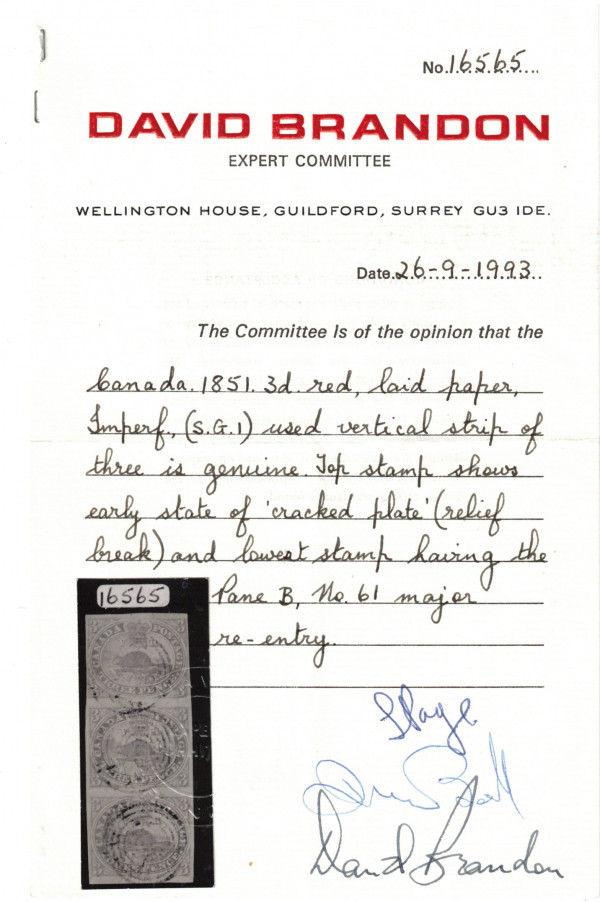 No. 16565
DAVID BRANDON
EXPERT COMMITTEE
WELLINGTON HOUSE, GUILDFORD, SURREY GU3 1DE.
Date. 26-9-1993
The Committee Is of the opinion that the
Canada. 1851. 3d. red, laid paper,
Imperf., (S.G.1) used vertical strip of
three is genuine. Top stamp shows
early state of 'cracked plate' (relief
break) and lowest stamp having the
Pane B, No. 61 major
re-entry.
16565
CANADA POSTAGE
THREE PENCE
David Brandon